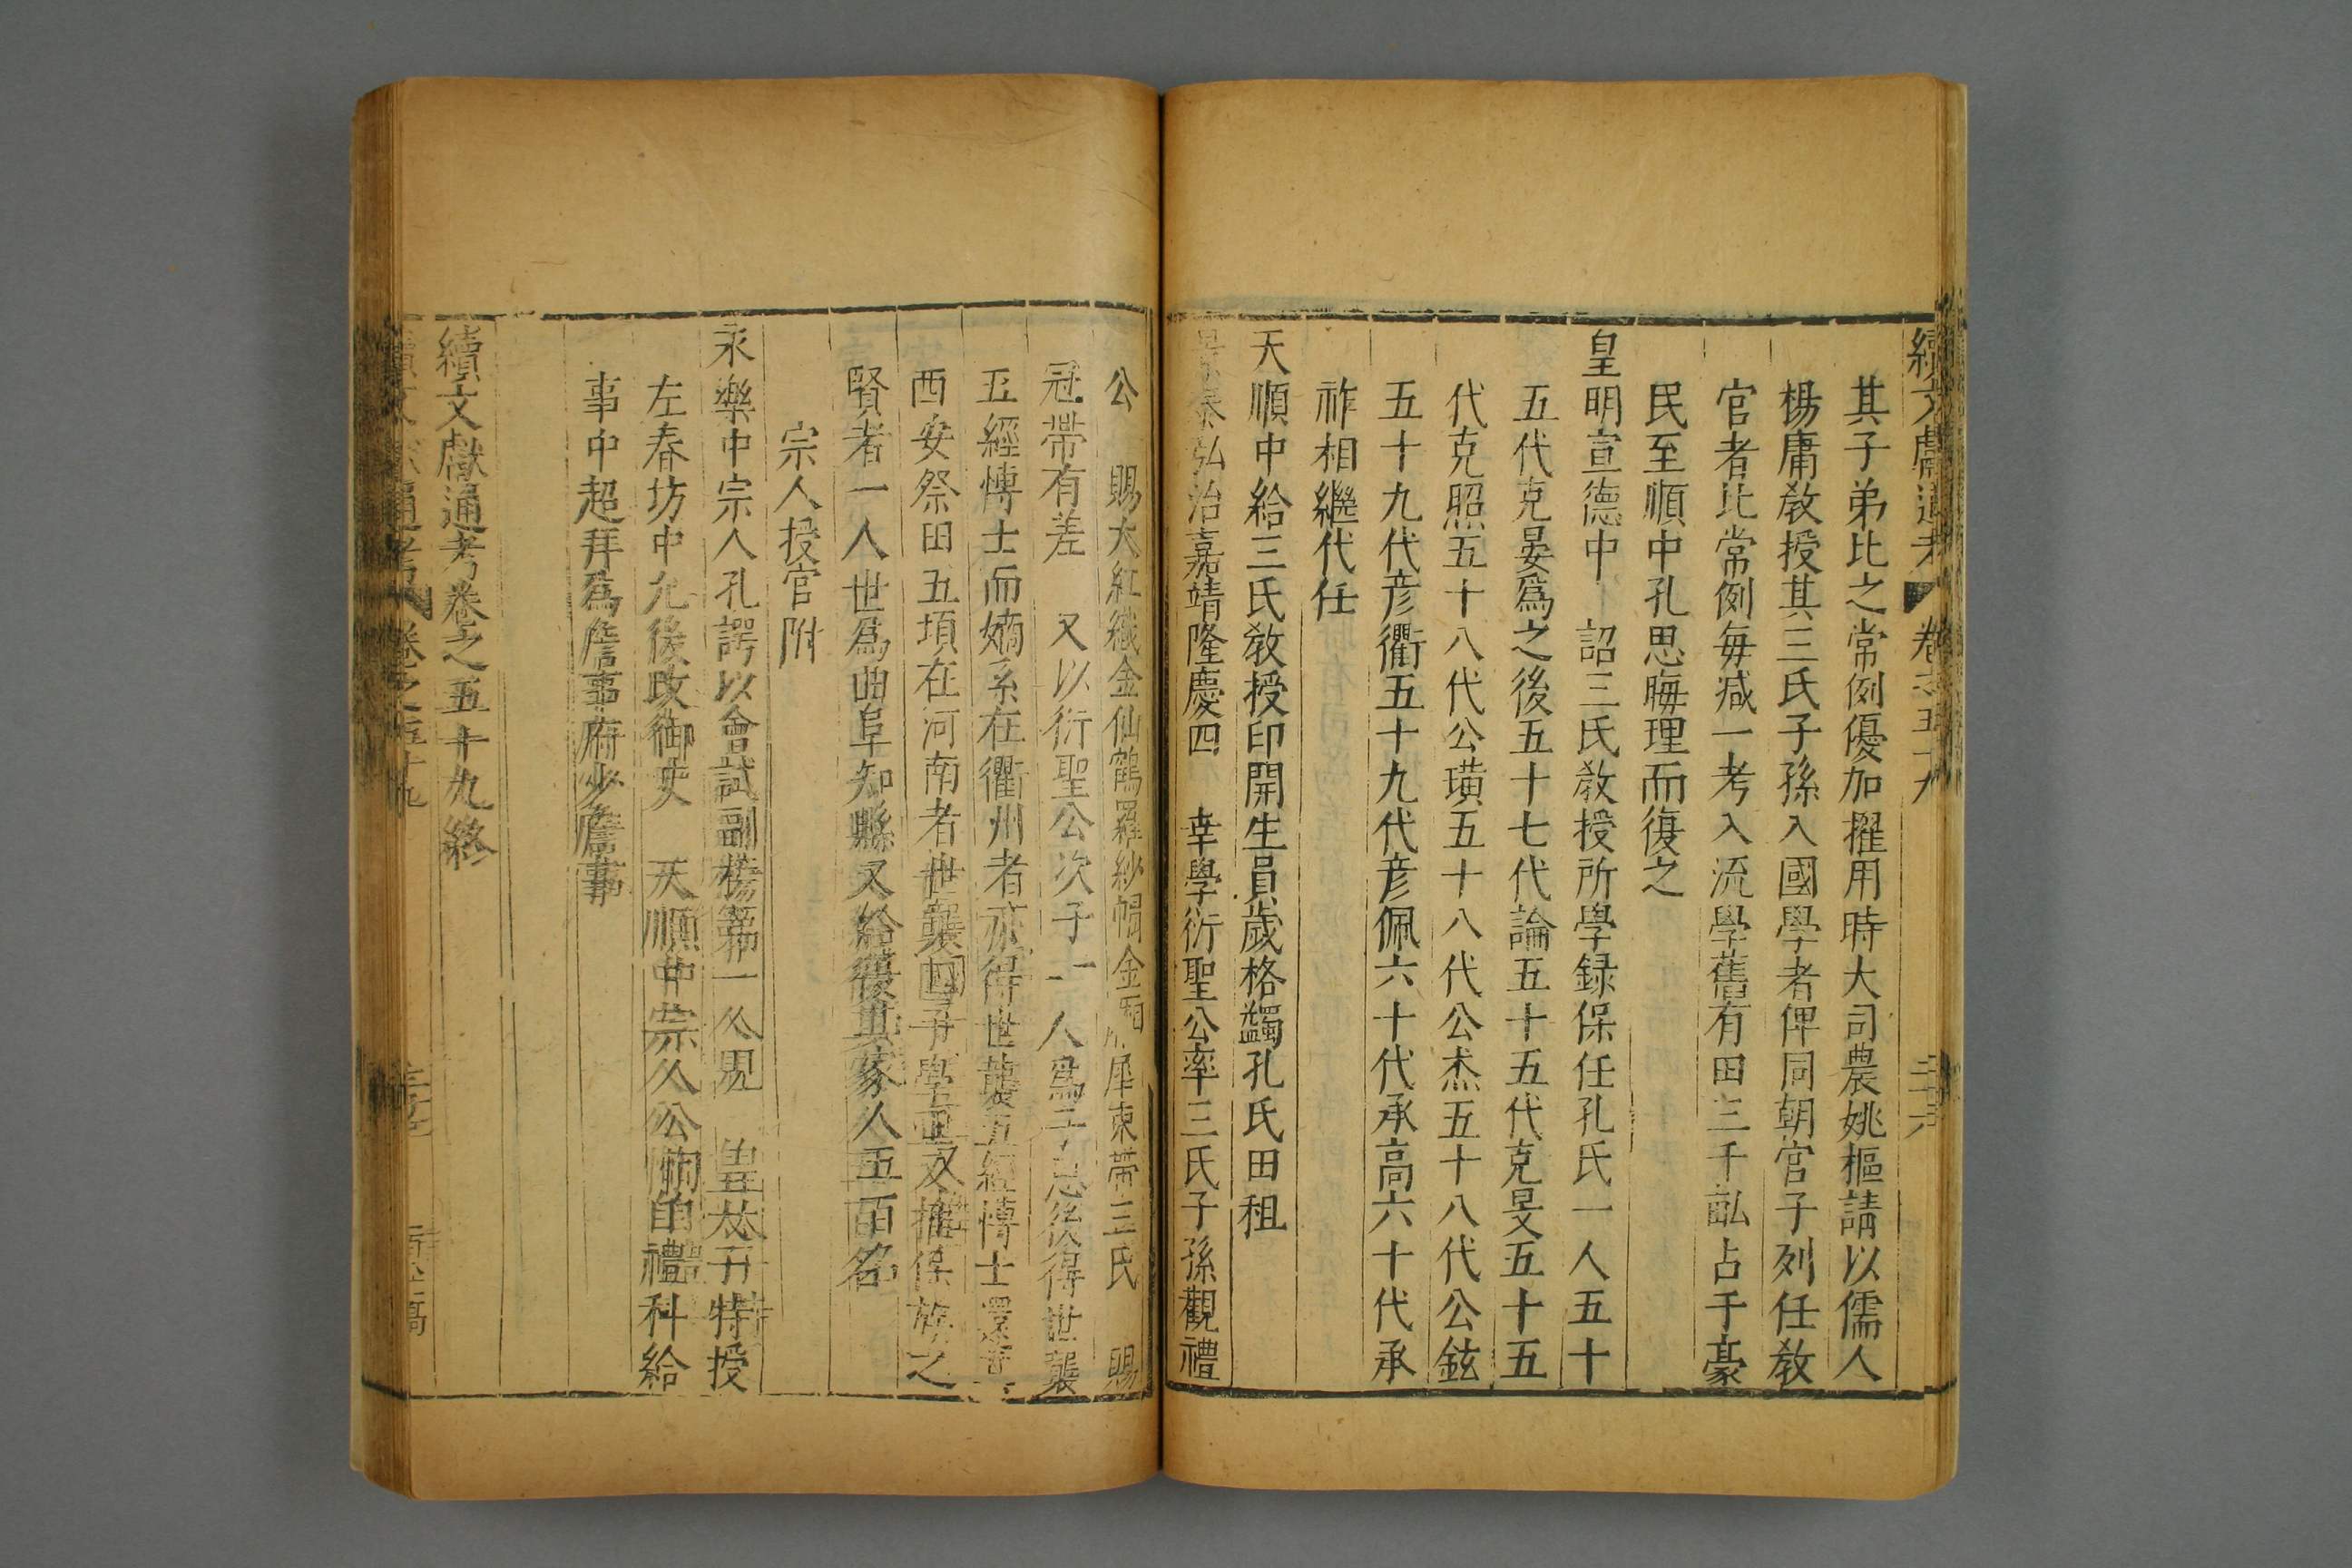 續文獻通考 卷之五十九
其子弟比之常例優加擢用時大司農姚樞請以儒人
楊庸教授其三氏子孫入國學者俾同朝官子列任教
官者比常例每減一考入流學舊有田三千畝占于豪
民至順中孔思晦理而復之
皇明宣德中 詔三氏教授所學録保任孔氏一人五十
五代克晏爲之後五十七代論五十五代克旻五十五
代克照五十八代公璜五十八代公杰五十八代公鉉
五十九代彦衢五十九代彦佩六十代承高六十代承
祚相繼代任
天順中給三氏教授印開生員歲格蠲孔氏田租
景泰弘治嘉靖隆慶四 幸學衍聖公率三氏子孫觀禮
公 賜大紅織金仙鶴羅紗幞金廂犀束帶三氏 賜
冠帶有差 又以衍聖公次子一人爲子思後得世襲
五經博士而嫡系在衢州者亦得世襲五經博士還其
西安祭田五頃在河南者世襲國子學正又擢保族之
賢者一人世爲曲阜知縣又給復其家人五百名
宗人授官附
永樂中宗人孔諤以會試副榜第一入見 皇太子特授
左春坊中允後改御史 天順中宗人公恂由禮科給
事中超拜爲詹事府少詹事
續文獻通考卷之五十九終